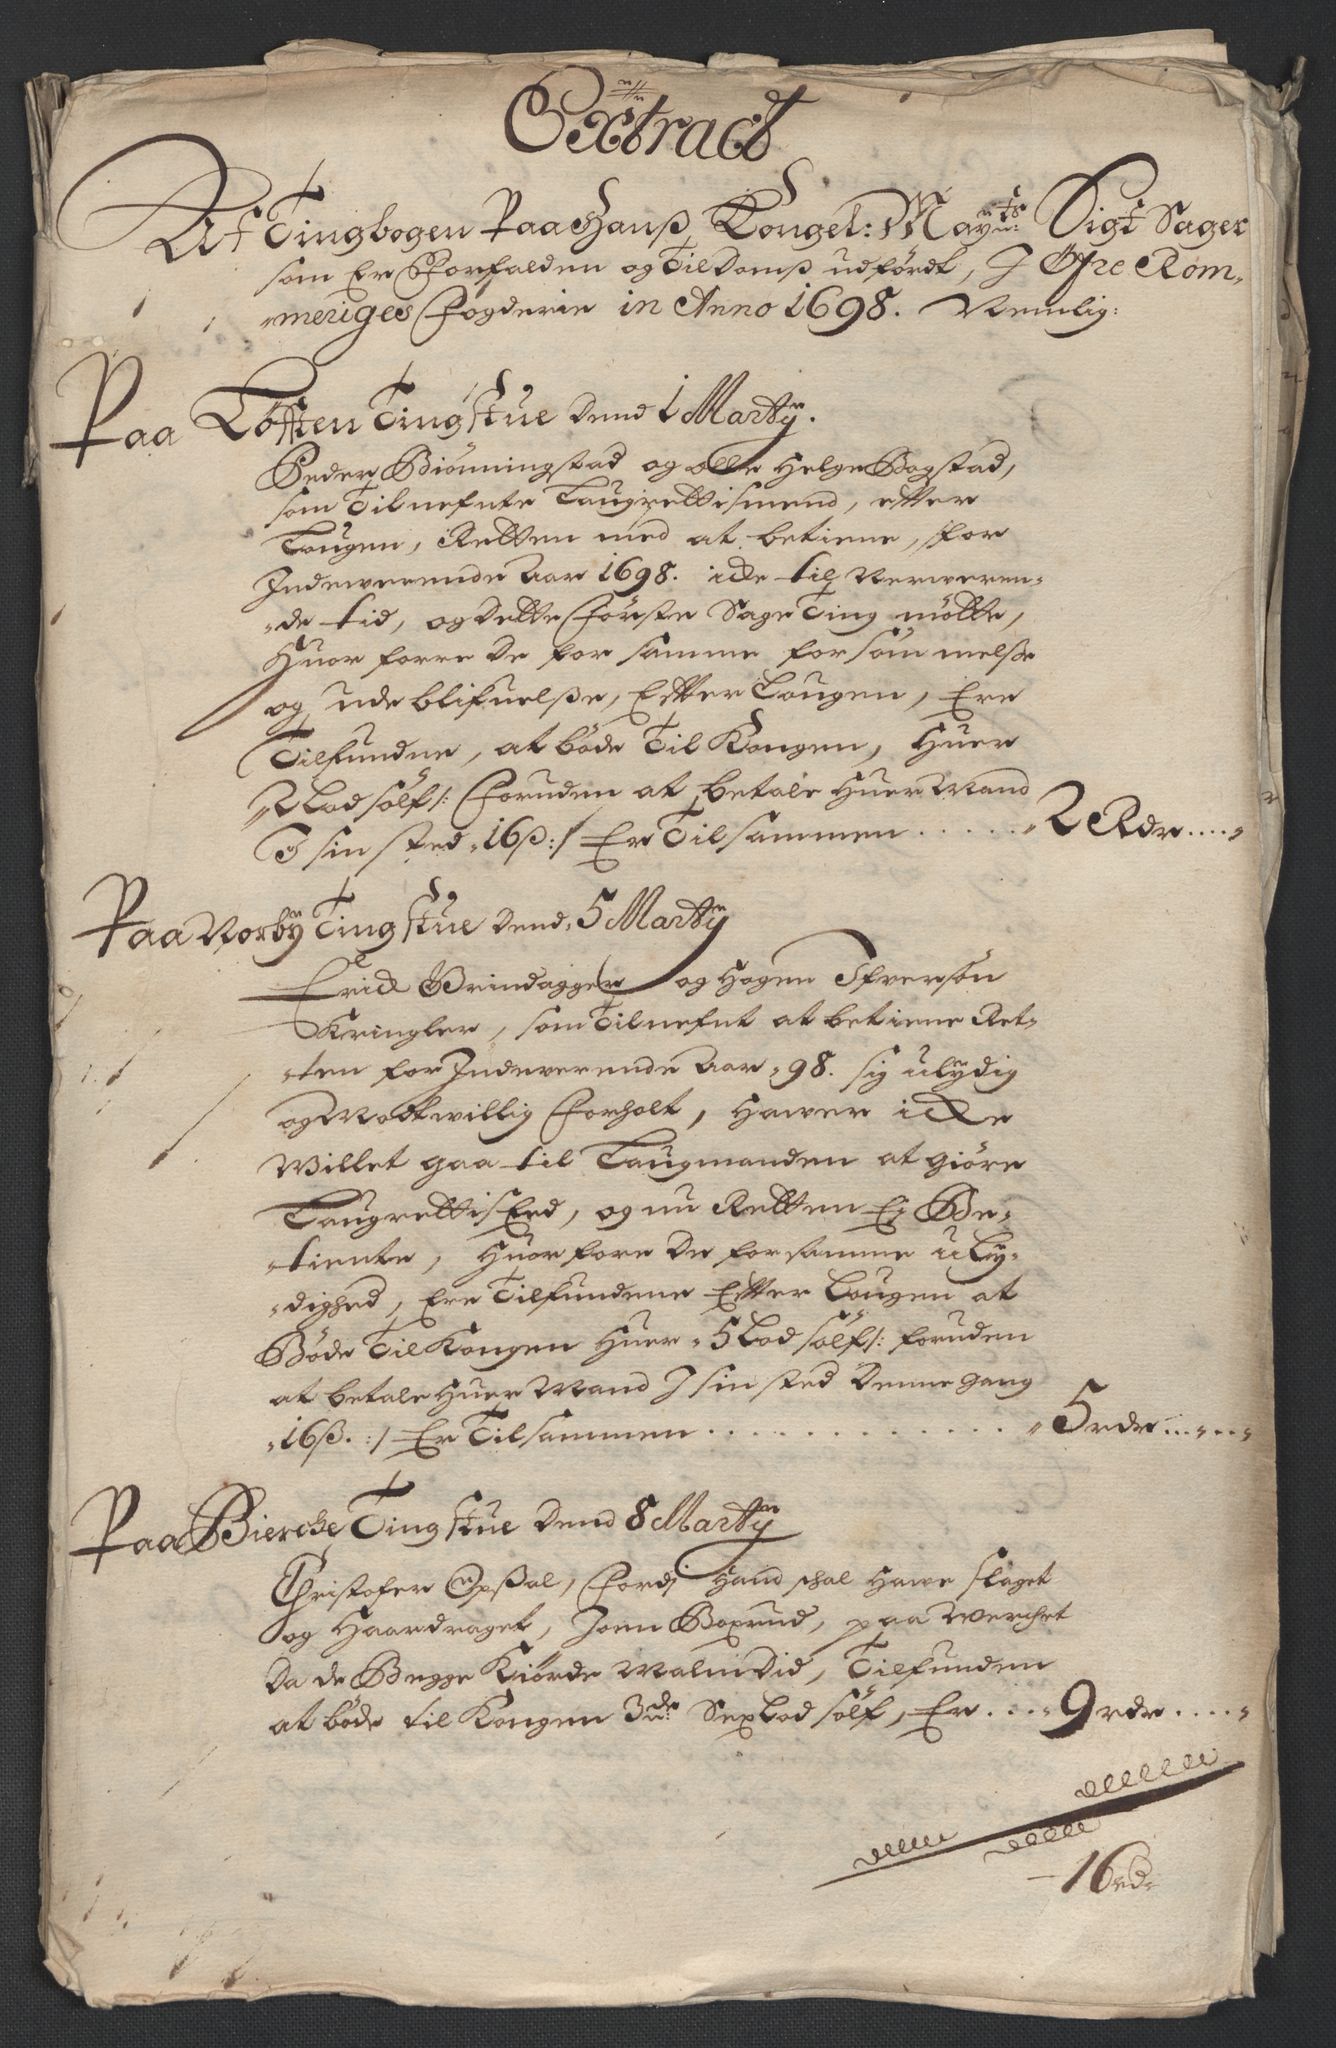 Extract
Af Tingbogen Paa Hanß Kongel: Mayts: Sigt Sager
som Er Forfalden og Til Domß udfördt, J Öfre Rom-
meriges Fogderie in Anno 1698. Nemlig:
Paa Töfften Tingstue Dend 1 Marty.
Peder Biönningstad og olle Helge Bogstad,
som Tilnefnte Laugrettismend, efter
Laugen, Retten med at betiene, for
Jndeverende Aar 1698. icke til Nerveren-
de tid, og Dette Förste Sage Ting mötte,
Huor forre De for samme forsömmelse
og udeblifuelße, Efter Laugen, Ere
Tilfundne, at böde Til Kongen, Huer
2 Lod sölf /: Foruden at betale Huer Mand
J sin sted 16ß :/ Er Tilsammen ..... 2 Rdr ....
Paa Norby Tingstue Dend 5 Marty
Erick Grindagger og Hogen Ifversön
Kringler, som Tilnefnt at betiene Ret-
ten for Jndeverende Aar 98. sig ulydig
og Modtwillig Forholt, Hawer icke
Willet gaa til Laugmanden at giöre
Laugrettis Eed, og nu Retten Ej Be-
tiente, Huorfore De for samme uly-
dighed, Ere Tilfundene Efter Laugen at
Böde Til Kongen Huer 5 Lod sölf /: foruden
at betale Huer Mand J sin sted Denne gang
16ß. :/ Er Tilsammen ............. 5 rdr .....
Paa Biercke Tingstue Dend 8 Marty
Christofer Opsal, Fordj Hand schal Hawe slaget
og Haardraget, Joen Boxrud, paa Werchet
Da de Begge Kiörde Malm Did, Tilfunden
at böde til Kongen 3de: Sex Lod sölf, Er .... 9 rdr ....
16 rd